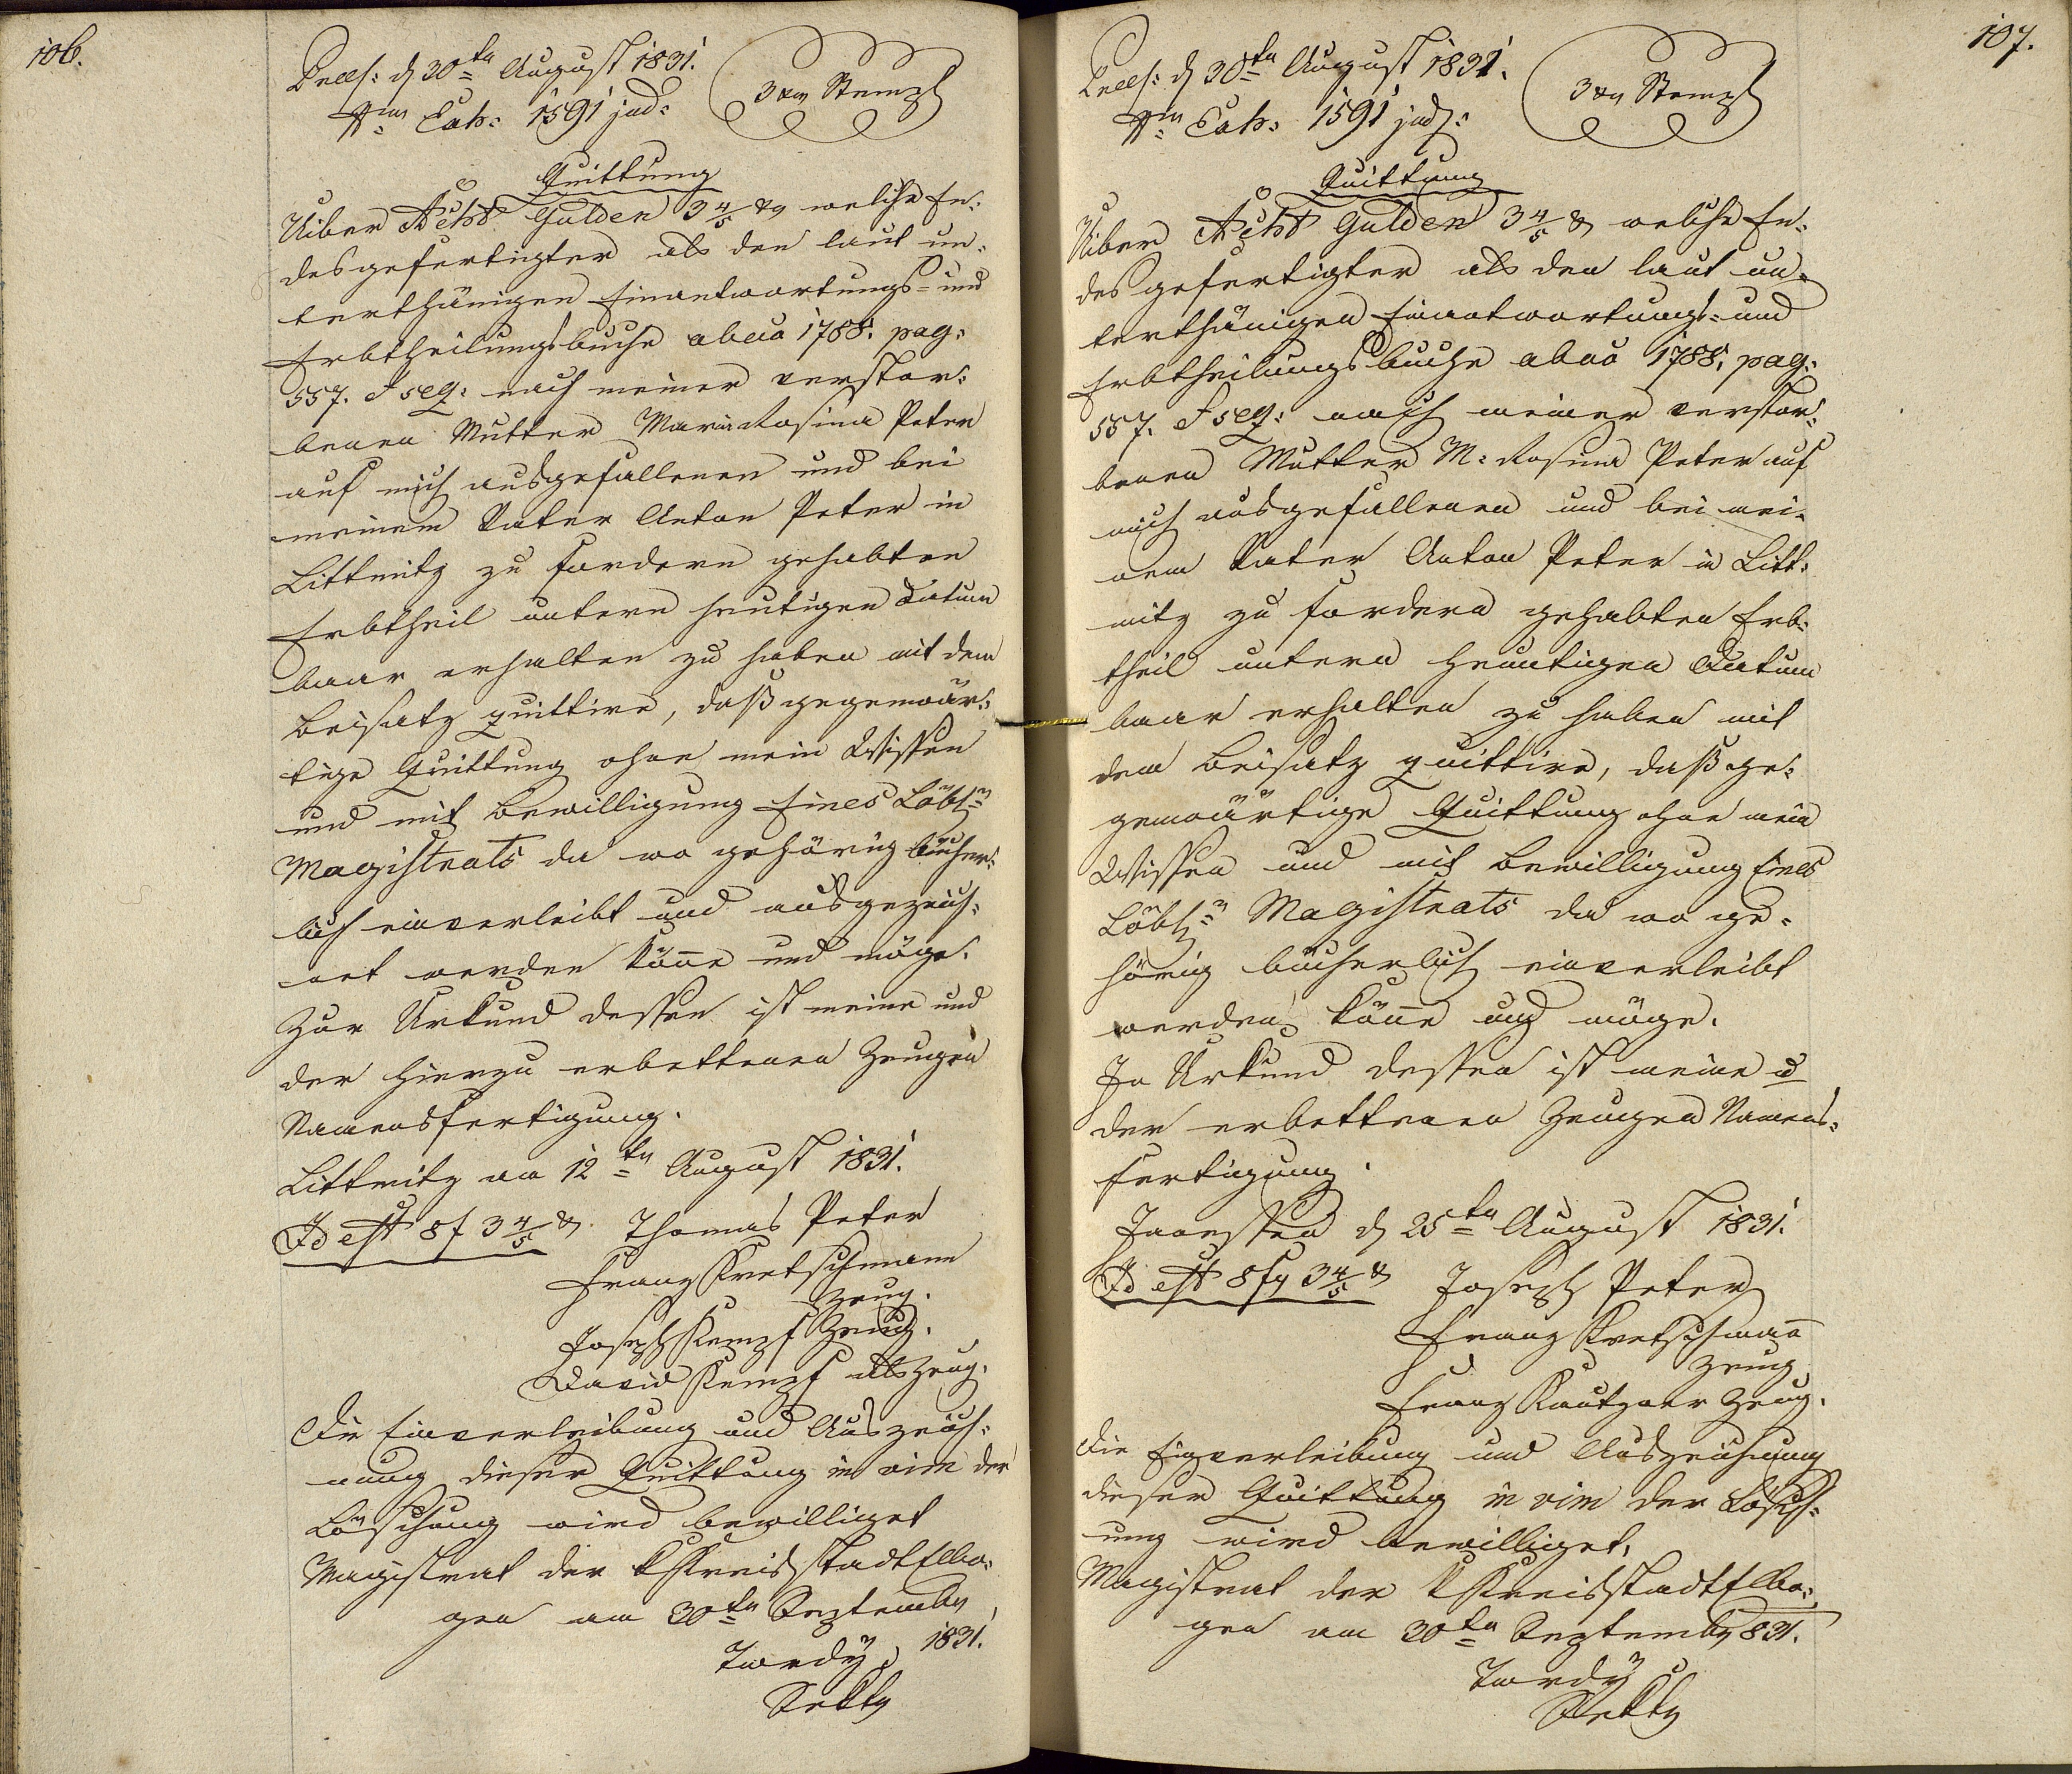 106.
Präs: d 30ten August 1831.
Nro Exh: 1591 jud:
3 xr Stempl
Quittung
Uiber Acht Gulden 3 4/5 xr welche En:
desgefertigter als den laut un:
terthänigen Einantwortungs- und
Erbtheilungsbuche abeco 1788. pag:
557. & seq: nach meiner verstor:
benen Mutter Maria Rosina Peter
auf mich ausgefallenen und bei
meinem Vater Anton Peter in
Littmitz zu fordern gehabten
Erbtheil untern heutigen Datum
baar erhalten zu haben mit dem
Beisatz quittire, daß gegenwär:
tige Quittung ohne mein Wissen
und mit Bewilligung Eines Löbl:n
Magistrats da wo gehörig bücher:
lich einverleibt und ausgezeich:
net werden köñe und möge.
Zur Urkund dessen ist meine und
der hierzu erbettenen Zeugen
Namensfertigung.
Littmitz am 12ten August 1831.
Id est 8 f 3 4/5 xr Thomas Peter
Franz Kretschmann
Zeug.
Joseph Kempf Zeug.
David Kempf als Zeug.
Die Einverleibung und Auszeich:
nung dieser Quittung in vim der
Löschung wird bewilliget
Magistrat der K Kreisstadt Elbo:
gen am 30ten Septembr
1831.
Tordy
Sektr
107.
Präs: d 30ten August 1831.
Nro Exh: 1591 jud:
3 xr Stempl
Quittung
Uiber Acht Gulden 3 4/5 xr welche En:
desgefertigter als den laut un:
terthänigen Einantwortungs- und
Erbtheilungsbuche abeco 1788. pag:
557. & seq: nach meiner verstor:
benen Mutter M: Rosina Peter auf
mich ausgefallenen und bei mei:
nem Vater Anton Peter in Litt:
mitz zu fordern gehabten Erb:
theil untern heuntigen Datum
baar erhalten zu haben mit
dem Beisatz quittire, daß ge:
genwärtige Quittung ohne mein
Wissen und mit Bewilligung Eines
Löbl:n Magistrats da wo ge:
hörig bücherlich einverleibt
werden köñe und möge.
In Urkund dessen ist meine u
der erbettenen Zeugen Namens:
fertigung.
Janessen d 25ten August 1831.
Id est 8 f 3 4/5 xr Joseph Peter
Franz Kretschmañ
Zeug
Franz Kautzner Zeug.
Die Einverleibung und Auszeichnung
dieser Quittung in vim der Lösch:
ung wird bewilliget.
Magistrat der K Kreisstadt Elbo:
gen am 30ten Septembr 831.
Tordy
Sektr